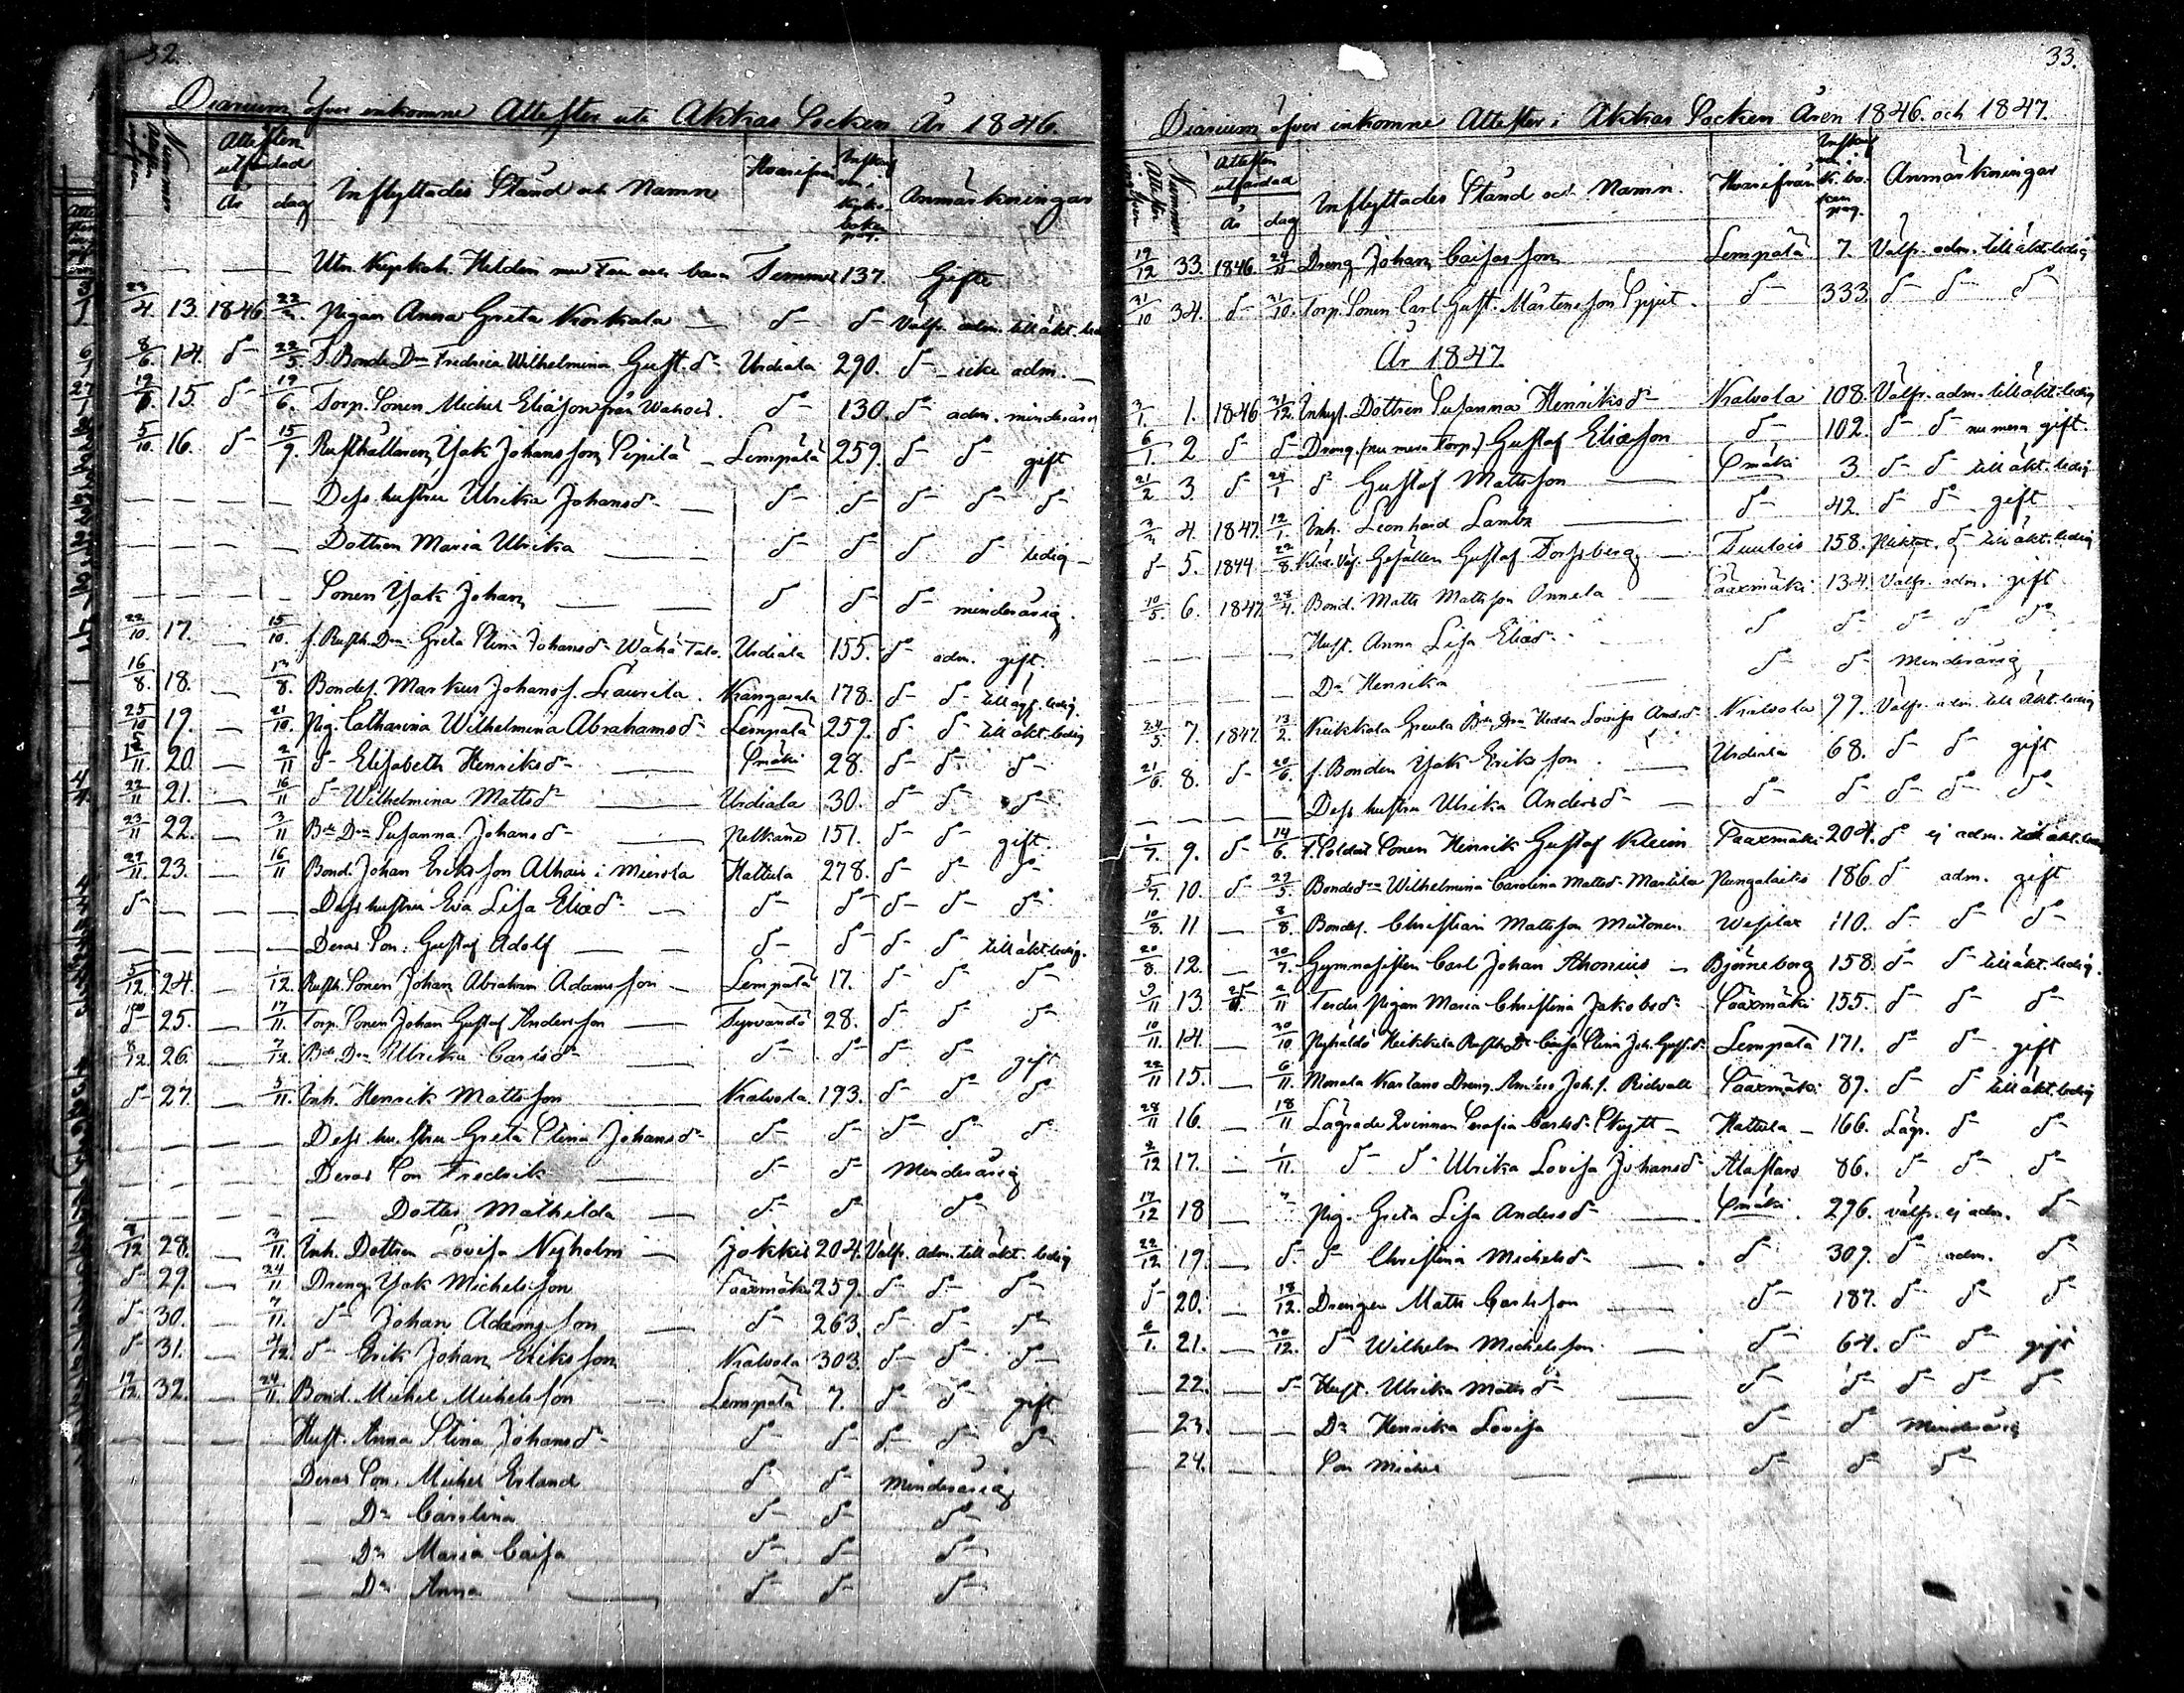 32.
Diarium öfver inkomne Attester uti Akkas Socken År 1846.
Nummer
Attesten utfärdad
År dag
Inflyttades Stånd och Namn
Hvarifrån
Anmärkningar
— — — Hildén med Fru och barn 137. Gifte
4. 13. 1846 Pigan Anna Greta Korkala — d:o d:o Välfr. adm. till äkt. led
8/6. 14. d:o 22/5. D:r Fredrica Wilhelmina Gust.d:r Urdiala 290. d:o icke adm. —
15. d:o 19/6. Torp. Sonen Michel Eliasson från d:o 130. d:o adm. minderårig
5/10. 16. d:o 15/9. Rusthållaren Isak Johansson Pipilä — Lempälä 259. d:o d:o gift
— — — — Dess hustru Ulrika Johansd:r — d:o d:o d:o d:o d:o
— — — — Dottren Maria Ulrika — d:o d:o d:o d:o ledig
— — — — Sonen Isak Johan — d:o d:o d:o minderårig.
22/10. 17. 15/10. f. Rusth. D:r Greta Stina Johansd:r Urdiala 155. d:o adm. gift.
16/8. 18. — 8. Bondes. Markus Johans s. Laurila. Kangasala 178. d:o d:o ledig
25/10 19. — 21/10. Pig. Catharina Wilhelmina Abrahamsd:r Lempälä 259. d:o d:o till äkt. ledig
11 20. — 2/11 d:o Elisabeth Henriksd:r — Smäki 28. d:o d:o d:o
22/11 21. — 16/11 d:o Wilhelmina Mattsd:r — Urdiala 30. d:o d:o d:o
23/11 22. — 3/11 B:de D:r Susanna Johansd:r — Pelkäne 151. d:o d:o gift
27/11 23. — 16/11 Bond. Johan Eriksson i Hattula 278. d:o d:o d:o
d:o — — — Dess hustru Eva Lisa Eliæd:r — d:o d:o d:o d:o d:o
— — — — Deras Son. Gustaf Adolf — d:o d:o d:o d:o till äkt. ledig.
5/12. 24. — 12. Rusth. Sonen Johan Abraham Adamsson — Lempälä 17. d:o d:o d:o
d:o 25. — 17/11. Torp. Sonen Johan Gustaf Andersson — Tyrvändö 28. d:o d:o d:o
8/12. 26. — 7/12. B:de D:r Ulrika Carlsd:r — d:o d:o d:o d:o gift
d:o 27. — 5/11. Inh. Henrik Mattsson — Kalvola 193. d:o d:o d:o
— — — Dess hustru Greta Stina Johansd:r d:o d:o d:o d:o d:o
— — — Deras Son Fredrik — d:o d:o Minderårig
— — — Dotter Mathilda — d:o d:o d:o
9/12 28. — 3/11. Inh. Dottren Lovisa Nyholm — Jokkis 204. Välfr. adm. till äkt. ledig
d:o 29. — 24/11 Dreng Isak Michelsson Sääxmäki 259. d:o d:o d:o
d:o 30. — 7/11. d:o Johan Adamsson — d:o 263. d:o d:o d:o
d:o 31. — 12. d:o Erik Johan Eriksson Kalvola 303. d:o d:o d:o
12. 32. — 24/11. Bond. Michel Michelsson — Lempälä 7. d:o d:o gift
— — — — Hust. Anna Stina Johansd:r d:o d:o d:o d:o d:o
Deras Son. Michel Erland d:o d:o Minderårig
— D:r Carolina d:o d:o d:o
— D:r Maria Caisa d:o d:o d:o
— D:r Anna — d:o d:o d:o
33.
Diarium öfver inkomne Attester i Akkas Socken Åren 1846. och 1847.
Nummer
Attesten utfärdad
År dag
Inflyttades Stånd och Namn.
Hvarifrån
pag.
Anmärkningar
19/12 33. 1846. 24/11 Dreng Johan Caisasson — Lempälä 7. Välfr. adm. till äkt. ledig
31/10 34. d:o 31/10. Torp. Sonen Carl Gust. Mårtensson Spjut. d:o 333. d:o d:o d:o
År 1847.
3/1. 1. 1846 31/12. Inhys. Dottren Susanna Henriksd:r Kalvola 108. Välfr. adm. till äkt. ledig
6/1. 2 d:o d:o Dreng. (nu mera Torp.) Gustaf Eliasson d:o 102. d:o d:o nu mera gift.
21/2 3 d:o 24/1 d:o Gustaf Mattsson — Smäki 3. d:o d:o till äkt. ledig
4. 1847. 12/1. Inh. Leonhard Lamb — d:o 42. d:o d:o gift
d:o 5. 1844 22/8. Gesällen Gustaf Forssberg — Tuulois 158. d:o till äkt. ledig
10/5. 6. 1847. 28/4. Bond. Matts Mattsson Annela — Sääxmäki 134. Välfr. adm. gift
— — — Hust. Anna Lisa Eliæd:r d:o d:o d:o d:o d:o
— D:r Henrika — d:o d:o Minderårig
24/5. 7. 1847. 13/2. B:de D:r Hedda Lovisa And.d:r Kalvola 97. Välfr. adm. till äkt. ledig
21/6 8. d:o 20/6. f. Bonden Isak Eriksson — Urdiala 68. d:o d:o gift
— — — — Dess hustru Ulrika Andersd:r — d:o d:o d:o d:o d:o
1/7. 9. d:o 14/6. f. Soldat Sonen Henrik Gustaf Kleim Sääxmäki 204. d:o ej adm. till äkt.
5/7. 10. d:o 27/5. Bonded:r Wilhelmina Carolina Mattsd:r Marttila Pungalaitis 186. d:o adm. gift
10/8. 11 — 8/8. Bondes. Christian Mattsson Wesilax 110. d:o d:o d:o
20/8. 12. — 30/7. Gymnasisten Carl Johan Ahonius — Björneborg 158. d:o d:o till äkt. ledig.
9/11 13. 2/11 Pigan Maria Christina Jakobsd:r Sääxmäki 155. d:o d:o d:o
10/11. 14. — 30/10 Heikkilä Rusth. D:r Caisa Stina Joh. Gust.d:r Lempälä 171. d:o d:o gift
22/11 15. — 6/11. Kartano Dreng. Joh. s. Ridvall Sääxmäki 87. d:o d:o till äkt. ledig
28/11 16. — 18/11 Lägrade Qvinnan Serafia Carlsd:r — Hattula — 166. Lägr. d:o d:o
2/12 17. — 1/11. d:o d:o Ulrika Lovisa Johansd:r Alastaro 86. d:o d:o d:o
17/12 18 — Pig. Greta Lisa Andersd:r — Smäki. 296. välfr. ej adm. d:o
22/12 19. — d:o d:o Christina Michelsd:r — d:o 309. d:o adm. d:o
d:o 20. — 18/12. Drengen Matts Carlsson — d:o 187. d:o d:o d:o
6/1. 21. — 30/12. d:o Wilhelm Michelsson — d:o 64. d:o d:o gift
— 22. — d:o Hust. Ulrika Mattsd:r — d:o d:o d:o d:o d:o
— 23. — — D:r Henrika Lovisa d:o d:o Minderårig
— 24. — — Son Michel — d:o d:o d:o